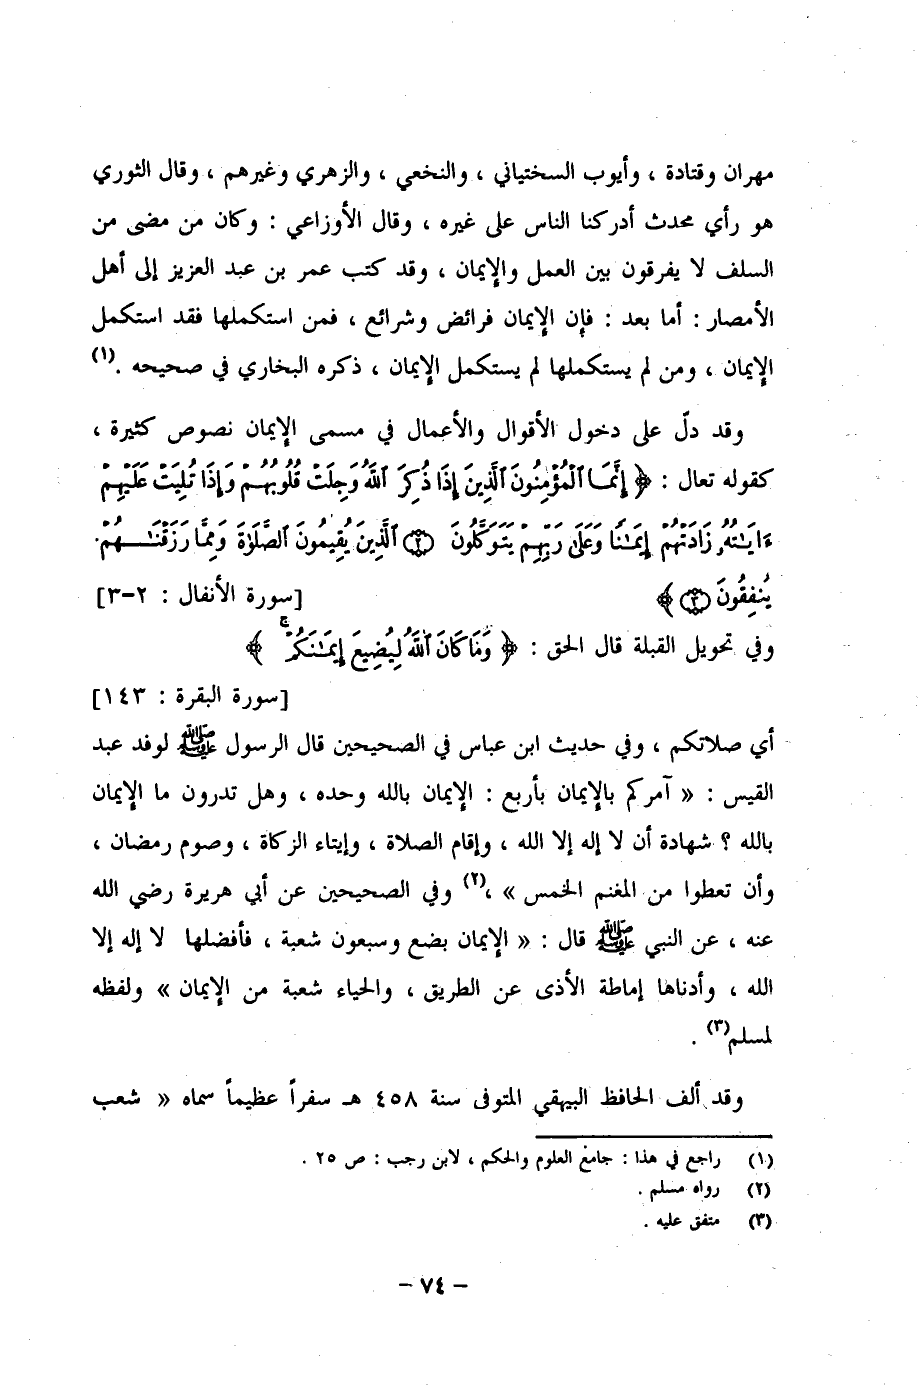 مهران وقتادة ، وأيوب السختياني ، والنخعي ، والزهري وغيرهم ، وقال الثوري
هو رأي محدث أدركنا الناس على غيره ، وقال الأوزاعي : وكان من مضى من
السلف لا يفرقون بين العمل والإيمان ، وقد كتب عمر بن عبد العزيز إلى أهل
الأمصار : أما بعد : فإن الإيمان فرائض وشرائع ، فمن استكملها فقد استكمل
الإيمان ، ومن لم يستكملها لم يستكمل الإيمان ، ذكره البخاري في صحيحه .(١)
وقد دلّ على دخول الأقوال والأعمال في مسمى الإيمان نصوص كثيرة ،
كقوله تعال : ﴿ إِنَّمَا ٱلْمُؤْمِنُونَ ٱلَّذِينَ إِذَا ذُكِرَ ٱللَّهُ وَجِلَتْ قُلُوبُهُمْ وَإِذَا تُلِيَتْ عَلَيْهِمْ
ءَايَـٰتُهُۥ زَادَتْهُمْ إِيمَـٰنًا وَعَلَىٰ رَبِّهِمْ يَتَوَكَّلُونَ (٢) ٱلَّذِينَ يُقِيمُونَ ٱلصَّلَوٰةَ وَمِمَّا رَزَقْنَـٰهُمْ
يُنفِقُونَ (٣) ﴾ [سورة الأنفال : ٢-٣]
وفي تحويل القبلة قال الحق : ﴿ وَمَا كَانَ ٱللَّهُ لِيُضِيعَ إِيمَـٰنَكُمْ ۚ ﴾
[سورة البقرة : ١٤٣]
أي صلاتكم ، وفي حديث ابن عباس في الصحيحين قال الرسول ﷺ لوفد عبد
القيس : « آمركم بالإيمان بأربع : الإيمان بالله وحده ، وهل تدرون ما الإيمان
بالله ؟ شهادة أن لا إله إلا الله ، وإقام الصلاة ، وإيتاء الزكاة ، وصوم رمضان ،
وأن تعطوا من المغنم الخمس » ،(٢) وفي الصحيحين عن أبي هريرة رضي الله
عنه ، عن النبي ﷺ قال : « الإيمان بضع وسبعون شعبة ، فأفضلها لا إله إلا
الله ، وأدناها إماطة الأذى عن الطريق ، والحياء شعبة من الإيمان » ولفظه
لمسلم(٣) .
وقد ألف الحافظ البيهقي المتوفى سنة ٤٥٨ هـ سفراً عظيماً سماه « شعب
(١) راجع في هذا : جامع العلوم والحكم ، لابن رجب : ص ٢٥ .
(٢) رواه مسلم .
(٣) متفق عليه .
– ٧٤ –